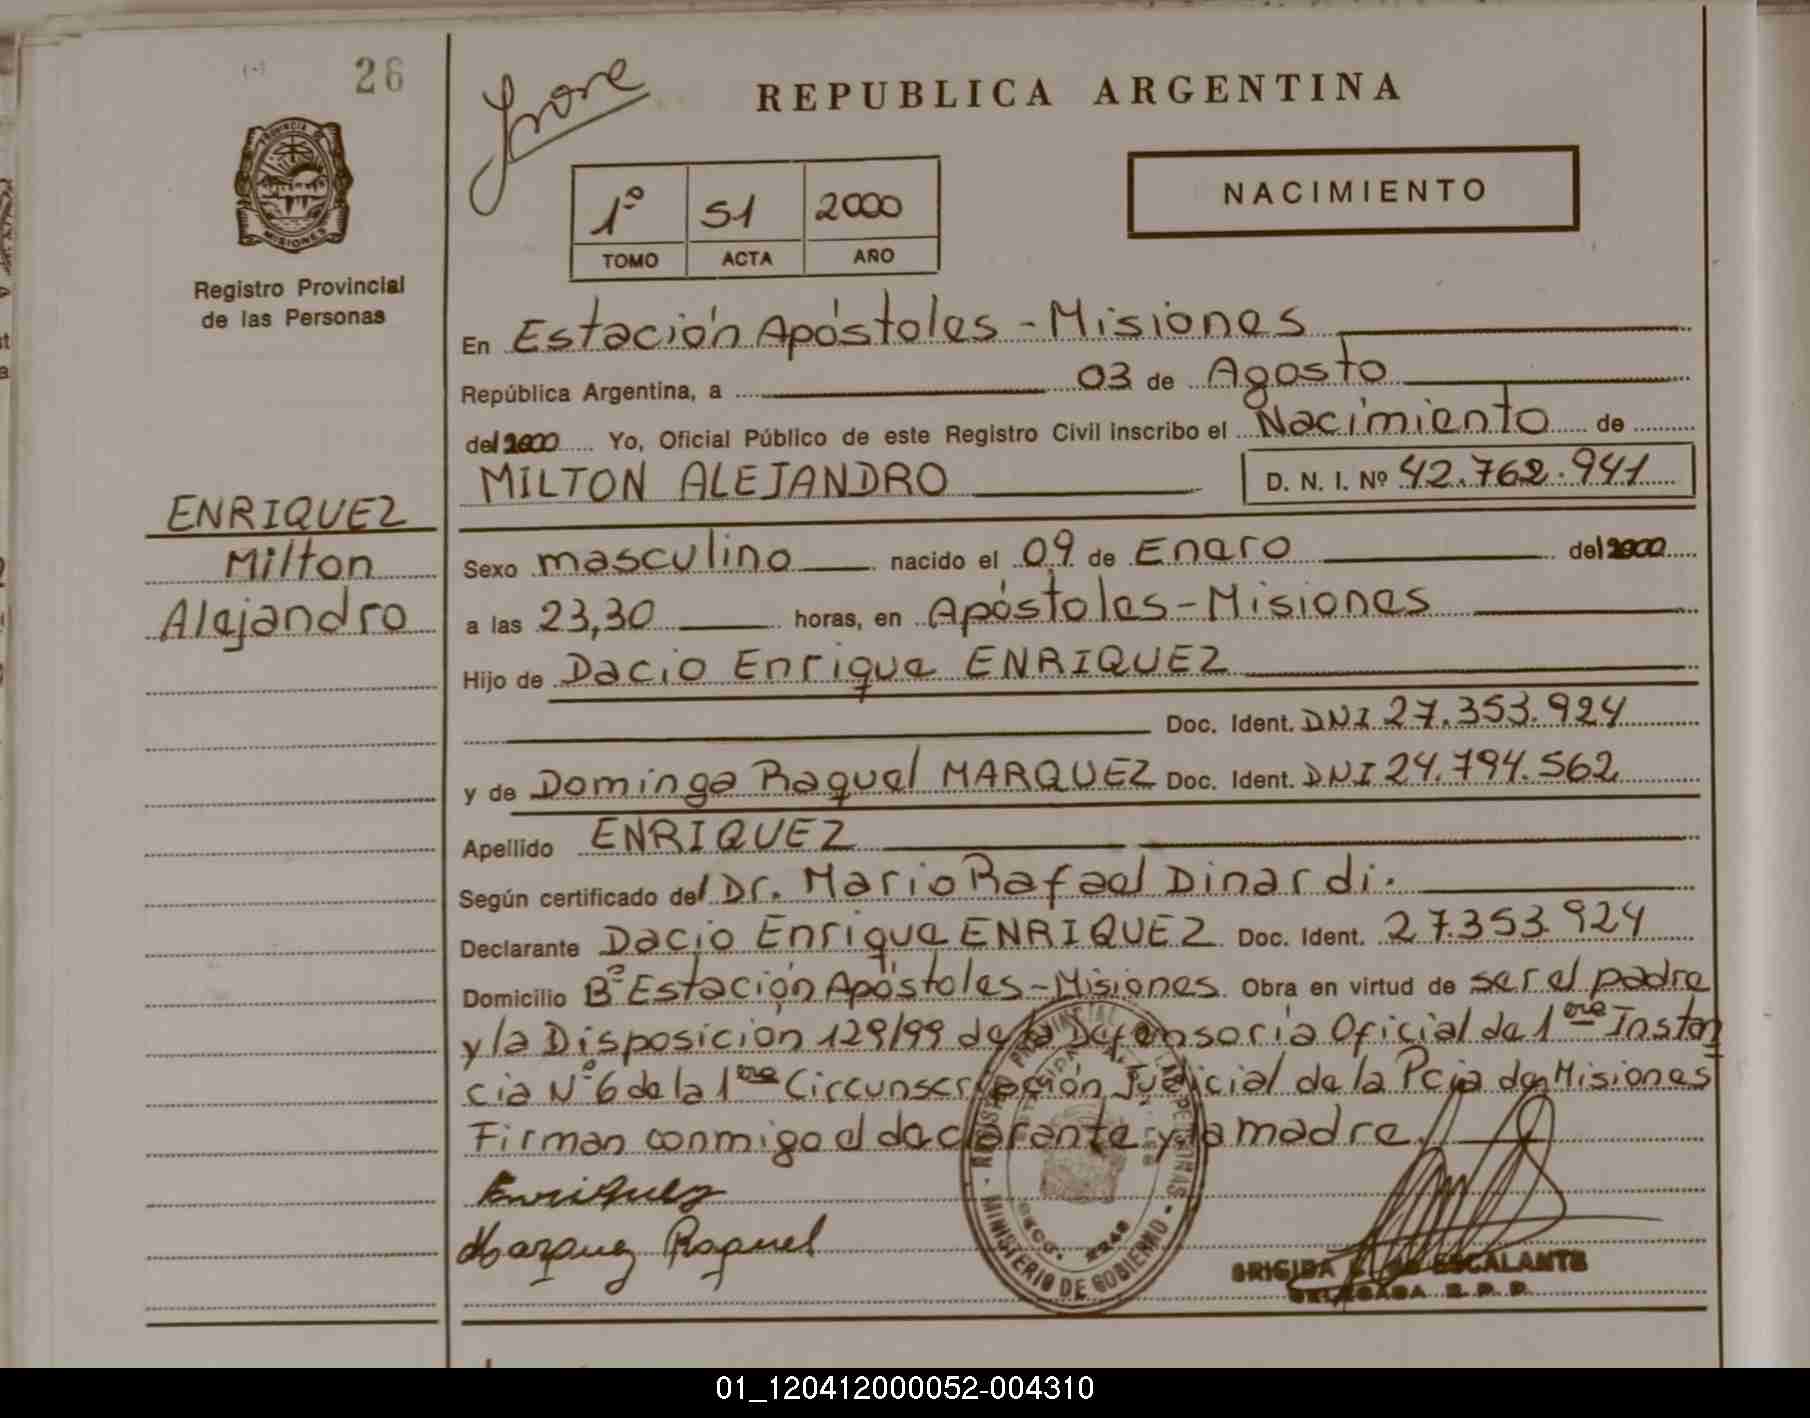 26
REPUBLICA ARGENTINA
PROVINCIA DE MISIONES
Registro Provincial
de las Personas
1º 51 2000
TOMO ACTA AÑO
NACIMIENTO
En Estación Apóstoles - Misiones
República Argentina, a 03 de Agosto
del 2000 Yo, Oficial Público de este Registro Civil inscribo el Nacimiento de
MILTON ALEJANDRO D. N. I. Nº 42.762.941
ENRIQUEZ
Milton
Alejandro
Sexo masculino nacido el 09 de Enero del 2000
a las 23,30 horas, en Apóstoles - Misiones
Hijo de Dacio Enrique ENRIQUEZ
Doc. Ident. DNI 27.353.924
y de Dominga Raquel MARQUEZ Doc. Ident. DNI 24.794.562
Apellido ENRIQUEZ
Según certificado del Dr. Mario Rafael Dinardi.
Declarante Dacio Enrique ENRIQUEZ Doc. Ident. 27.353.924
Domicilio Bº Estación Apóstoles - Misiones Obra en virtud de ser el padre
y la Disposición 129/99 de la Defensoría Oficial de 1era Instan
cia Nº 6 de la 1era Circunscripción Judicial de la Pcia de Misiones
Firman conmigo el declarante y la madre.
Enriquez
Marquez Raquel
REGISTRO PROVINCIAL DE LAS PERSONAS
MINISTERIO DE GOBIERNO
BRIGIDA ESCALANTE
DELEGADA R. P. P.
01_120412000052-004310